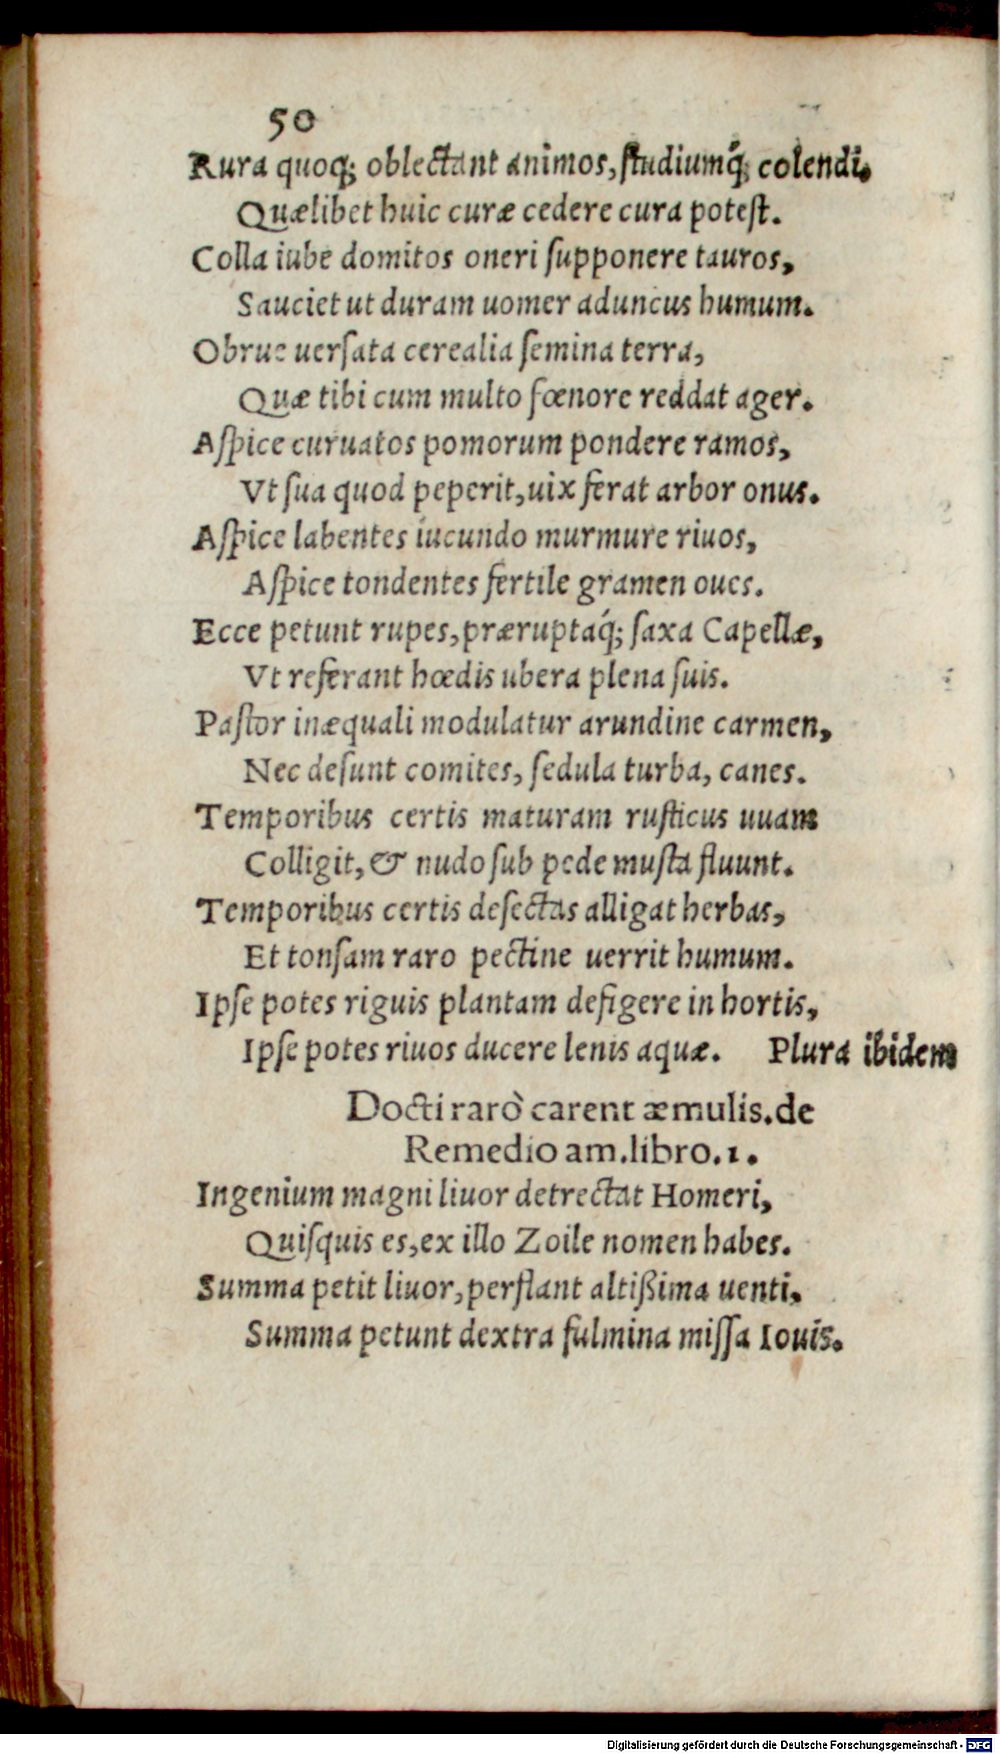 50
Rura quoq; oblectant animos, ſtudiumq́; colendi.
Quælibet huic curæ cedere cura poteſt.
Colla iube domitos oneri ſupponere tauros,
Sauciet ut duram uomer aduncus humum.
Obrue uerſata cerealia ſemina terra,
Quæ tibi cum multo fœnore reddat ager.
Aſpice curuatos pomorum pondere ramos,
Vt ſua quod peperit, uix ferat arbor onus.
Aſpice labentes iucundo murmure riuos,
Aſpice tondentes fertile gramen oues.
Ecce petunt rupes, præruptaq́; ſaxa Capellæ,
Vt referant hœdis ubera plena ſuis.
Paſtor inæquali modulatur arundine carmen,
Nec deſunt comites, ſedula turba, canes.
Temporibus certis maturam ruſticus uuam
Colligit, & nudo ſub pede muſta fluunt.
Temporibus certis deſectas alligat herbas,
Et tonſam raro pectine uerrit humum.
Ipſe potes riguis plantam defigere in hortis,
Ipſe potes riuos ducere lenis aquæ. Plura ibidem
Docti rarò carent æmulis. de
Remedio am. libro. 1.
Ingenium magni liuor detrectat Homeri,
Quiſquis es, ex illo Zoile nomen habes.
Summa petit liuor, perflant altißima uenti.
Summa petunt dextra fulmina miſſa Iouis.
Digitalisierung gefördert durch die Deutsche Forschungsgemeinschaft - DFG